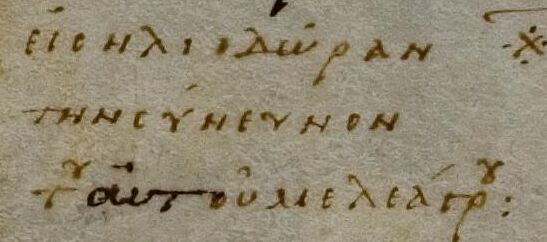 εἰσ ηλιοδώραν
τὴν σύνευνον
τ͂ου ἀυτοῦ μελεάγρου :